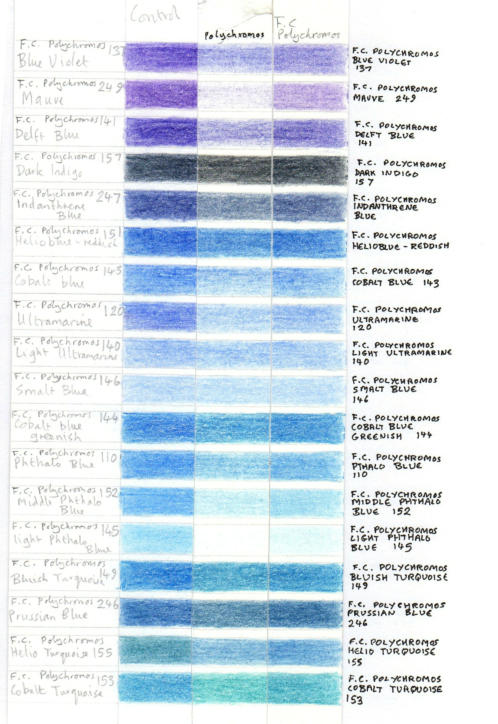 Control
Polychromos
F.C
Polychromos
F.C. Polychromos 137
Blue Violet
F.C. POLYCHROMOS
BLUE VIOLET
137
F.C. Polychromos 249
Mauve
F.C. POLYCHROMOS
MAUVE 249
F.C. Polychromos 141
Delft Blue
F.C. POLYCHROMOS
DELFT BLUE
141
F.C. Polychromos 157
Dark Indigo
F.C. POLYCHROMOS
DARK INDIGO
157
F.C. Polychromos 247
Indanthrene
Blue
F.C. POLYCHROMOS
INDANTHRENE
BLUE
F.C. Polychromos 151
Helioblue-reddish
F.C. POLYCHROMOS
HELIOBLUE-REDDISH
F.C. Polychromos 143
Cobalt blue
F.C. POLYCHROMOS
COBALT BLUE 143
F.C. Polychromos 120
Ultramarine
F.C. POLYCHROMOS
ULTRAMARINE
120
F.C. Polychromos 140
Light Ultramarine
F.C. POLYCHROMOS
LIGHT ULTRAMARINE
140
F.C. Polychromos 146
Smalt Blue
F.C. POLYCHROMOS
SMALT BLUE
146
F.C. Polychromos 144
Cobalt blue
greenish
F.C. POLYCHROMOS
COBALT BLUE
GREENISH 144
F.C. Polychromos 110
Phthalo Blue
F.C. POLYCHROMOS
PTHALO BLUE
110
F.C. Polychromos 152
Middle Phthalo
Blue
F.C. POLYCHROMOS
MIDDLE PHTHALO
BLUE 152
F.C. Polychromos 145
light Phthalo
Blue
F.C. POLYCHROMOS
LIGHT PHTHALO
BLUE 145
F.C. Polychromos 149
Bluish Turquoise
F.C. POLYCHROMOS
BLUISH TURQUOISE
149
F.C. Polychromos 246
Prussian Blue
F.C. POLYCHROMOS
PRUSSIAN BLUE
246
F.C. Polychromos
Helio Turquoise 155
F.C. POLYCHROMOS
HELIO TURQUOISE
155
F.C. Polychromos 153
Cobalt Turquoise
F.C. POLYCHROMOS
COBALT TURQUOISE
153